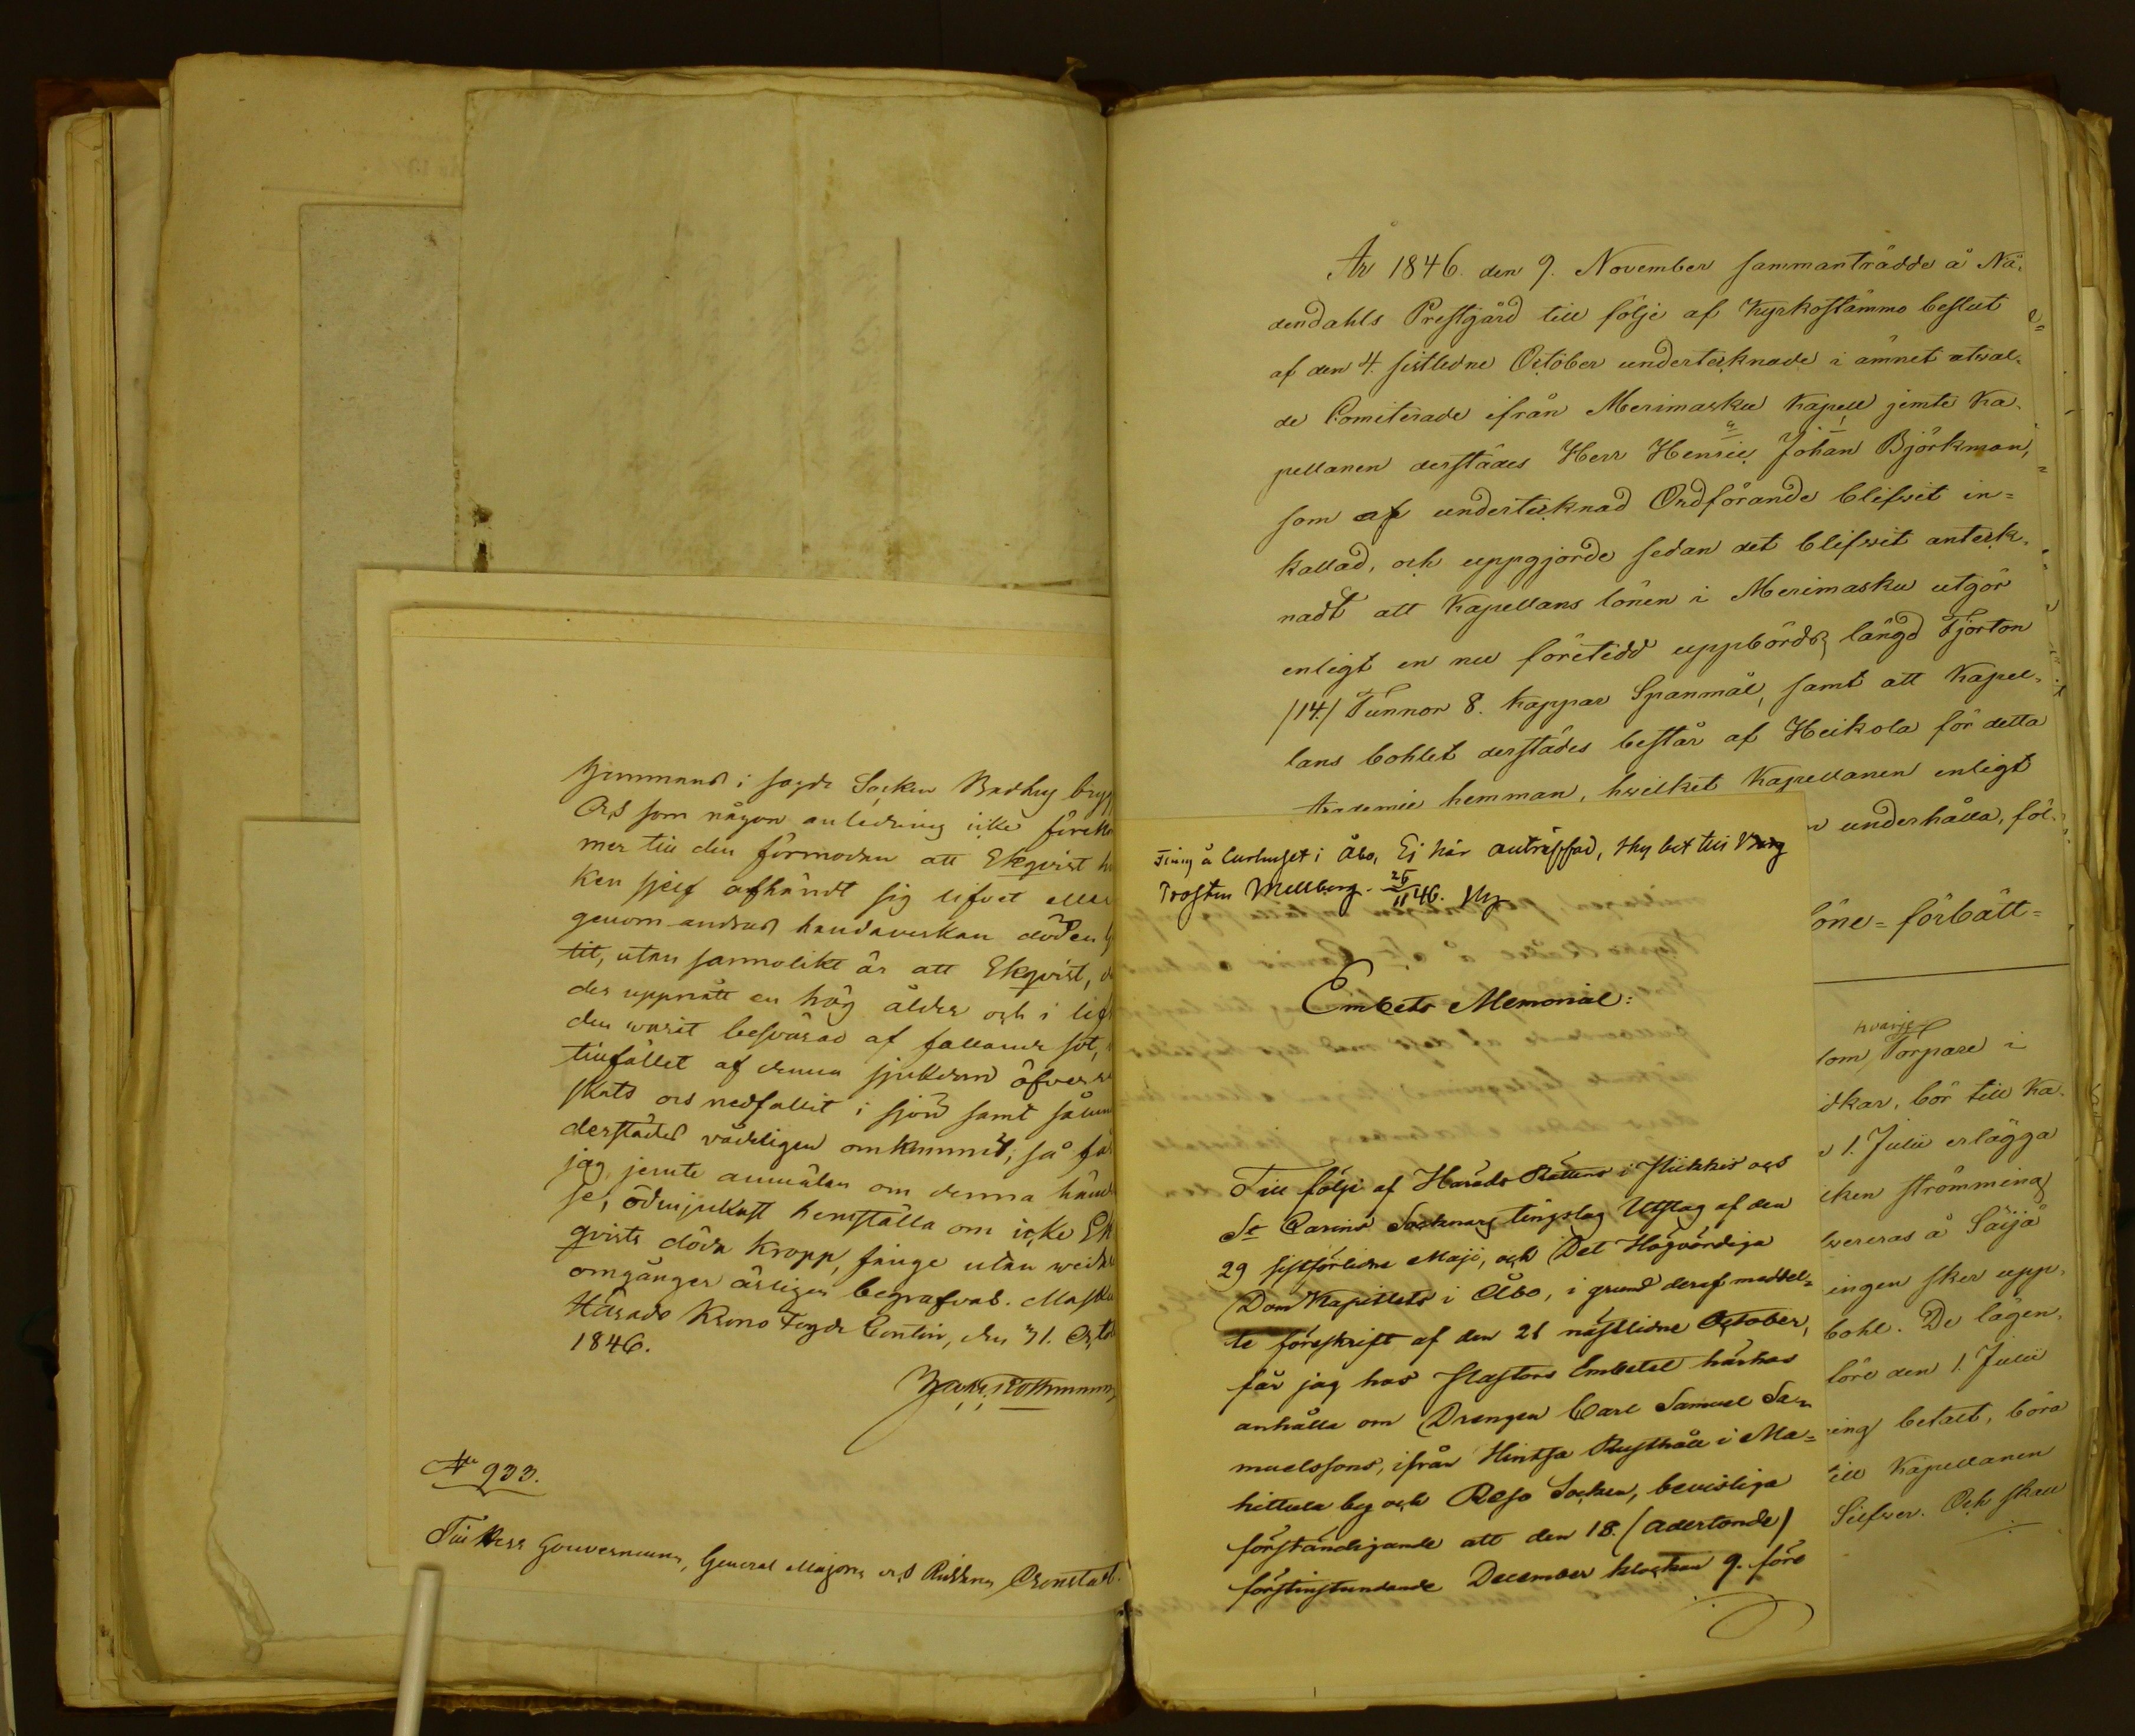 hemmand i sagde Socken Badhy
Och som någon anledning icke förekom
mer till den förmodan att Ekqvist
ken sjelf afhändt sig lifvet eller
genom andras handaverkan döden
tit, utan sannolikt är att Ekqvist,
der uppnått en hög ålder och i
den warit besvärad af fallande sot,
tillfället af denna sjukdom öfverra
skats och nedfallit i sjön samt
derstädes vådeligen omkommit; så får
jag jemte anmälan om denna händ
se, ödmjukast hemställa om icke Ek
qvists döda kropp, finge utan
omgånger ärligen begrafvas. Masku
Härads Krono Fogde Contoir, den 31. Octob
1846.
No 933.
Till Herr Gouverneuren, General Majoren och Riddaren Cronstedt.
År 1846. den 9. November sammanträdde å Nå-
dendahls Prestgård till följe af Kyrkostämmo beslut
af den 4. sistledne October undertecknade i ämnet utval-
de Comiterade ifrån Merimasku Kapell jemte Ka-
pellanen derstädes Herr Henric Johan Björkman,
som af undertecknad Ordförande blifvit in=
kallad, och uppgjorde sedan det blifvit anteck-
nadt att Kapellans lönen i Merimasku utgör
enligt en nu företedd uppbörds längd Fjorton
/14/ Tunnor 8. kappar Spanmål, samt att Kapel-
lans bohlet derstädes består af Heikola för detta
Academie hemman, hwilket Kapellanen enligt
underhålla, föl-
Ej här anträffad,
löne=förbätt=
hvarje
som Torpare i
idkar, bör till Ka-
1. Julii erlägga
cken strömming
lvereras å Saijä
ingen sker upp-
bohl. De lägen,
före den 1. Julii
ing betalt, böra
till Kapellanen
Silfver. Och skall
å Curhuset i Åbo,
Mellberg. 25/11 46.
Embets Memorial:
Till följe af Härads Rättens i Piikkis och
St Carins Socknars tingslag Utslag af den
29 sistförlidne Maji, och Det Högvördiga
DomKapitlets i Åbo, i grund deraf meddel=
te föreskrift af den 21 nästlidne October,
får jag hos Pastors Embetet härhos
anhålla om Drengen Carl Samuel Sa=
muelssons, ifrån Hintsa Rusthåll i Ma=
hittula by och Reso Socken, bevisliga
förständigande att den 18. (adertonde)
förstinstundande December klockan 9. före